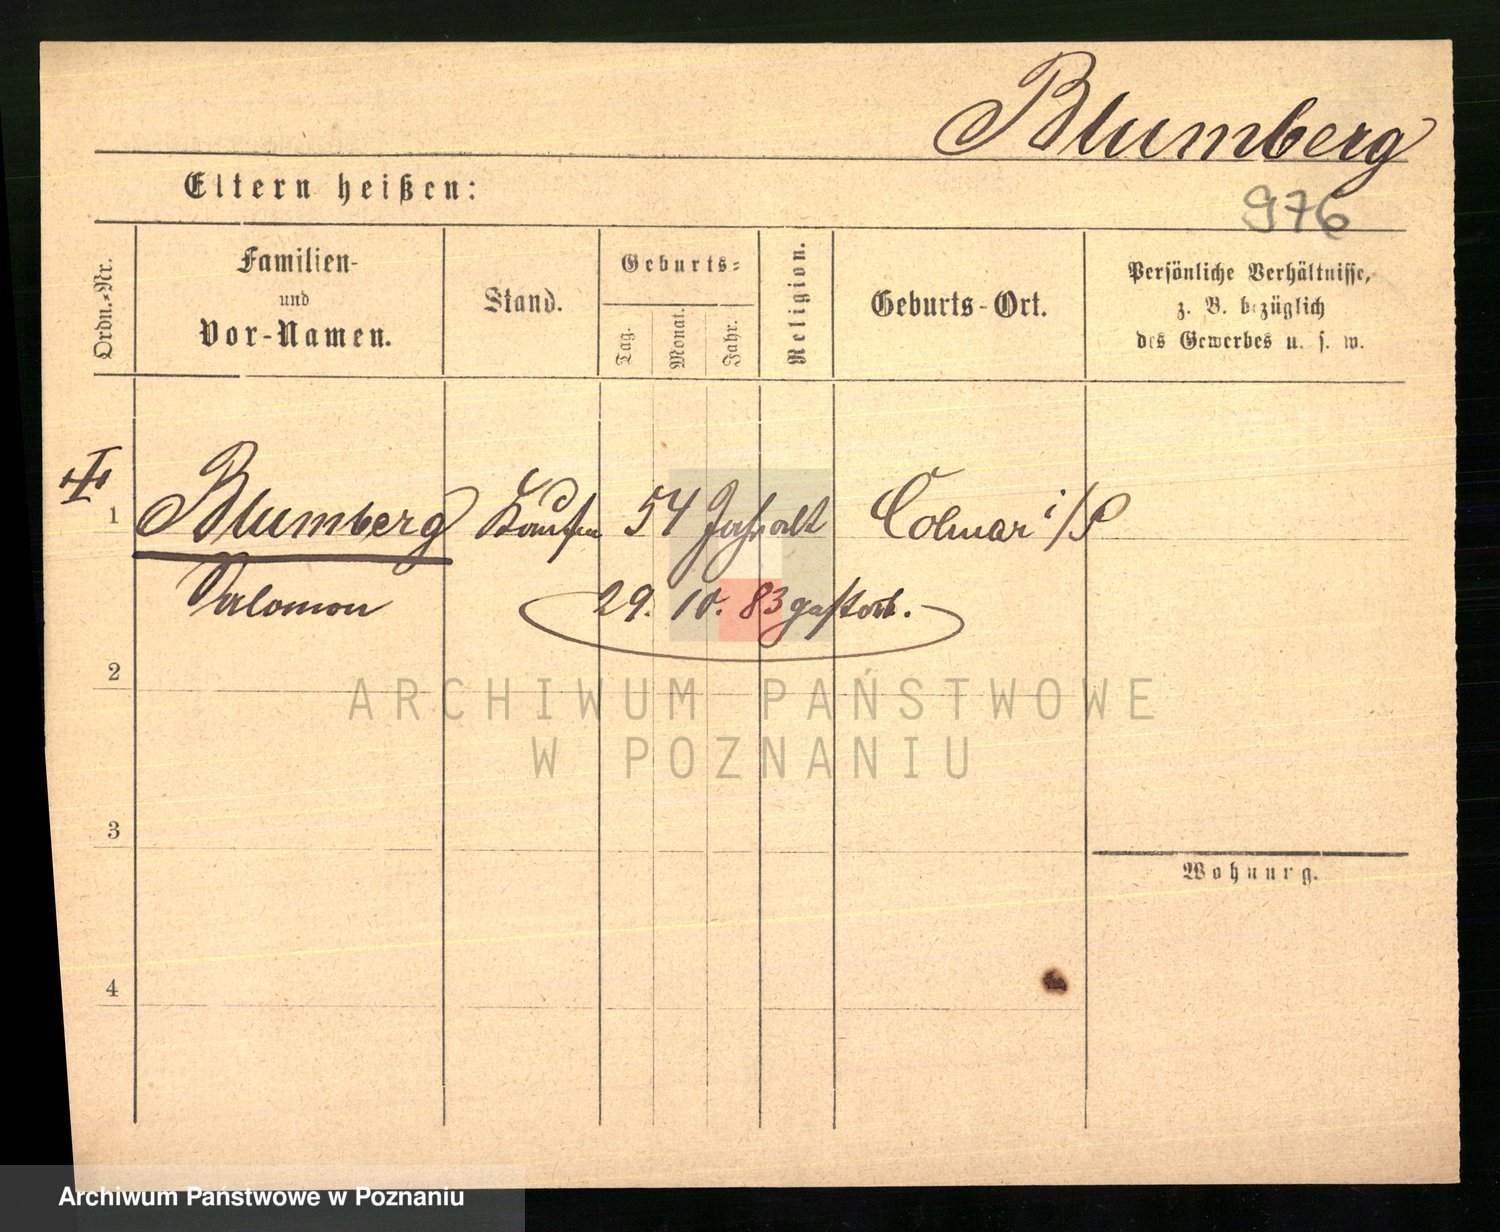 Blumberg
Eltern heißen:
976
Ordn.-Nr.
Familien-
und
Vor-Namen.
Stand.
Geburts-
Tag.
Monat.
Jahr.
Religion.
Geburts-Ort.
Persönliche Verhältnisse,
z. B. bezüglich
des Gewerbes u. s. w.
1 Blumberg Kaufm 54 Jahr alt Colmar i/P
Salomon 29. 10. 83 gestorb.
2
ARCHIWUM PAŃSTWOWE
W POZNANIU
3
Wohnung.
4
Archiwum Państwowe w Poznaniu